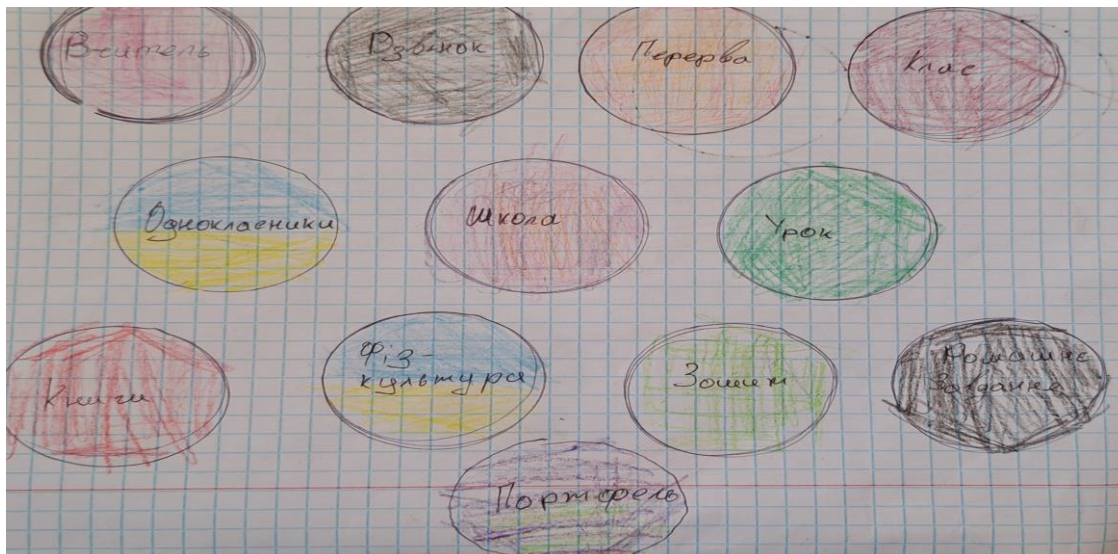 Вчитель
Дзвінок
Перерва
Клас
Однокласники
Школа
Урок
Книги
Фіз-
культура
Зошит
Домашнє
Завдання
Портфель